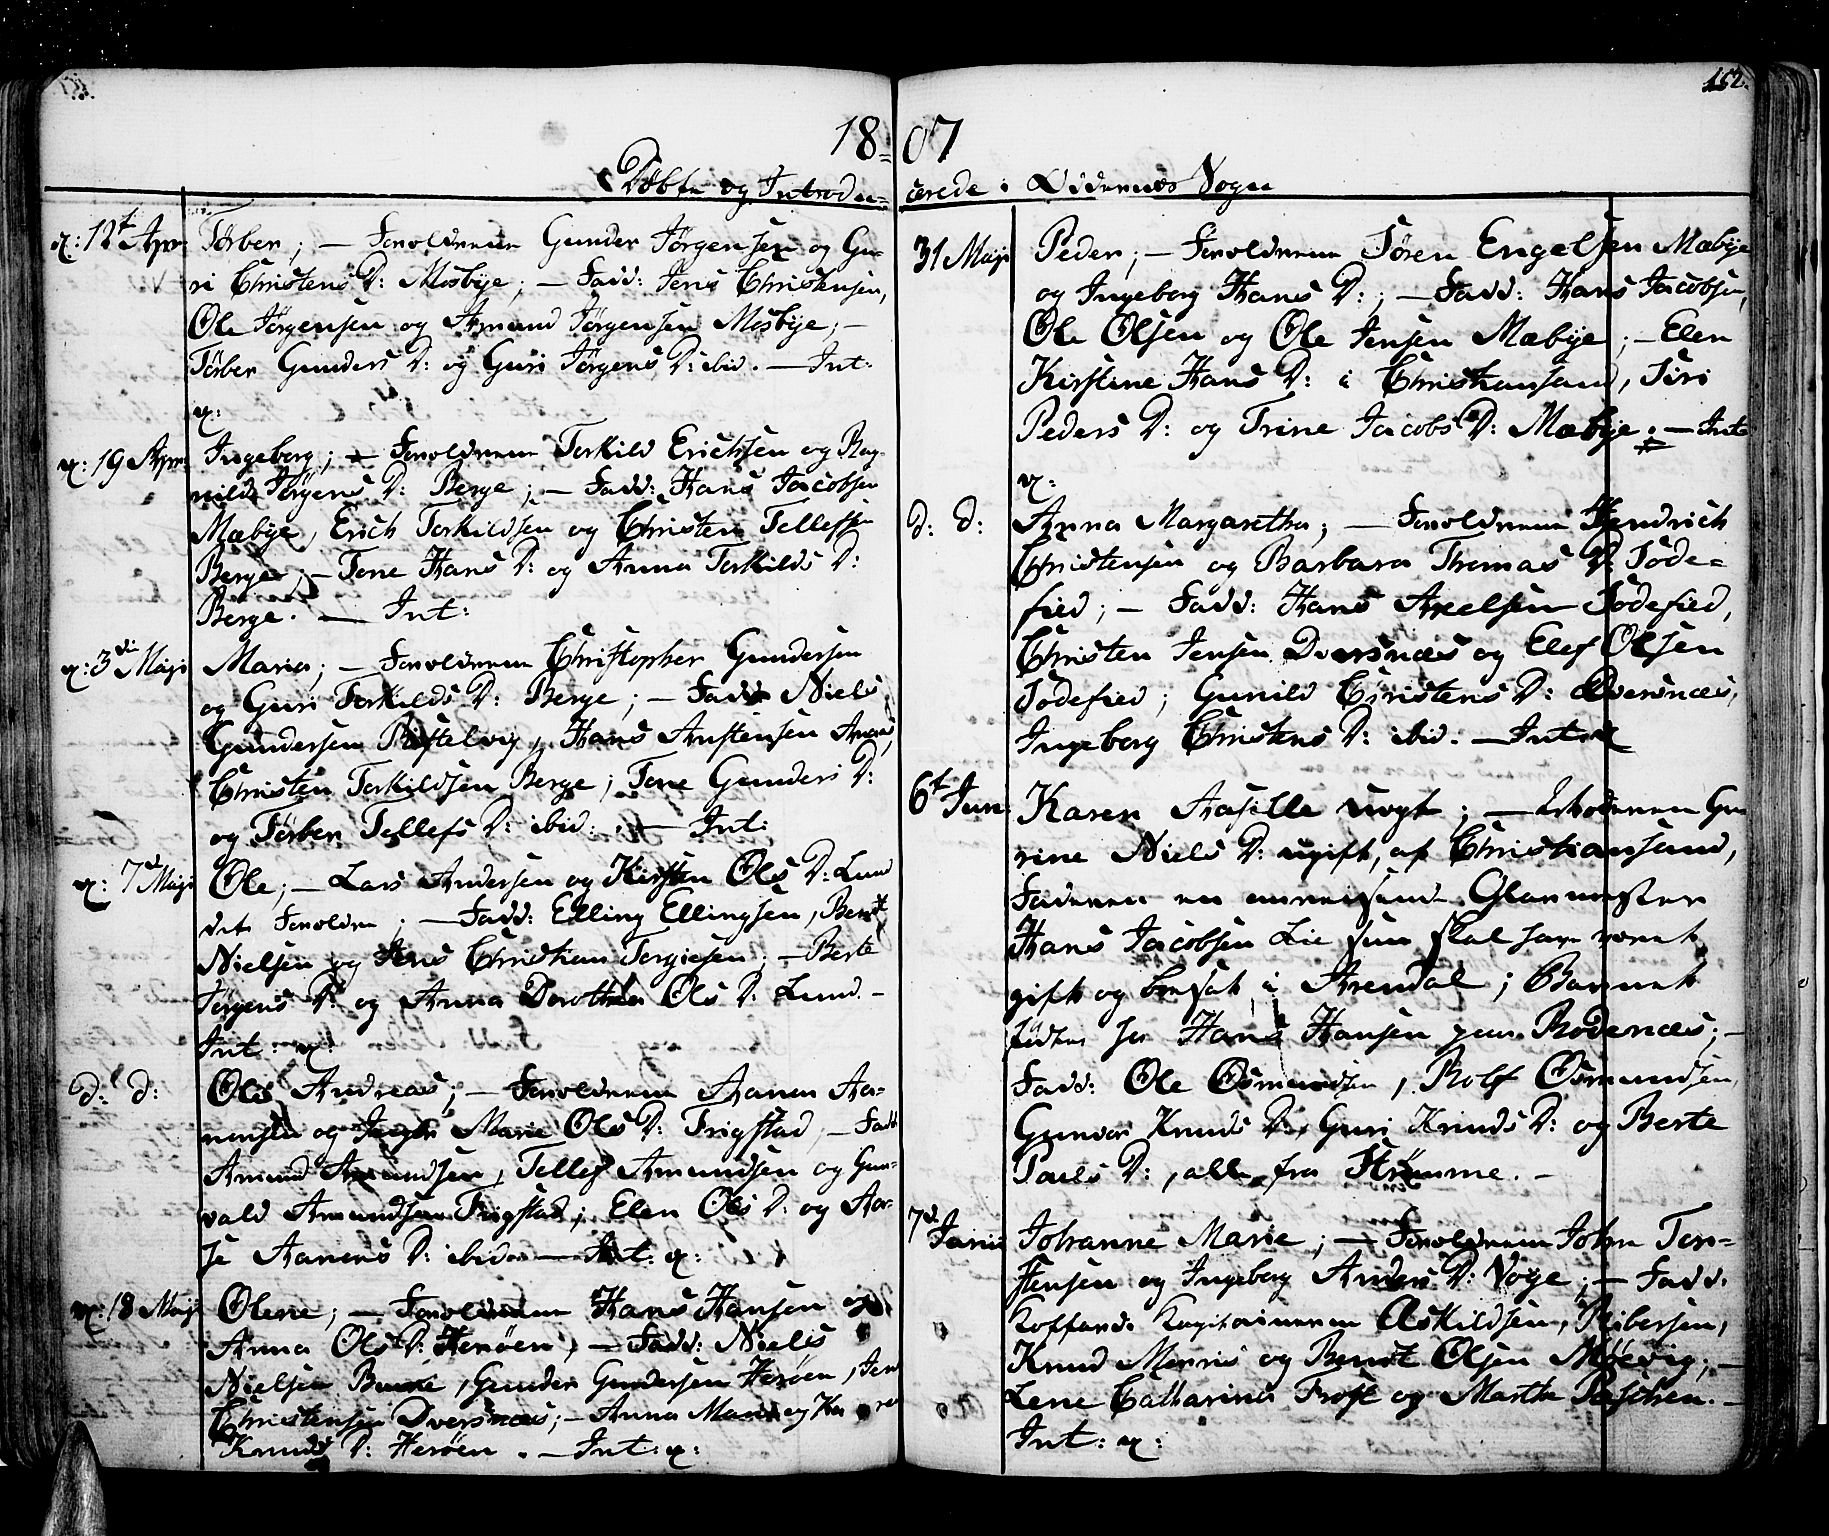 152.
18=07
Döbte og Introdu=cerede i Oddernæs Sogn
x: 12t Apr: Tørber; — Forældrene Gunder Jørgensen og Gu-
ri Christens D: Mosbye; — Fadd: Jens Christensen,
Ole Jørgensen og Amund Jørgensen Mosbye; —
Tørber Gunders D: og Guri Jørgens D: ibid. — Int:
x:
x: 19 Apr: Ingeborg; — Forældrene Torkild Erichsen og Rag-
nild Jørgens D: Berge; — Fadd: Hans Jacobsen
Mæbye, Erich Torkildsen og Christen Tellefsen
Berge; — Tone Hans D: og Anna Torkilds D:
Berge. — Int:
x: 3di Maji Maria; — Forældrene Christopher Gundersen
og Guri Torkilds D: Berge; — Fadd: Niels
Gundersen, Hans Anstensen
Christen Torkildsen Berge; Tone Gunders D:
og Tørber Tellefs D: ibid: . — Int:
x: 7d Maji Ole; — Lars Andersen og Kirsten Ols D: Lund
det Forældre; — Fadd: Elling Ellingsen, Bernt
Nielsen og Jens Christian Torgiesen; — Berte
Jørgens D: og Anna Dorothea Ols D: Lund. —
Int: x:
d: d: Ole Andreas; — Forældrene Aanen Aa-
nensen og Marie Ols D: Frigstad, — Fadd
Amund Amundsen, Tellef Amundsen og Gun-
vald Amundsen Frigstad; Elen Ols D: og Aa-
se Aanens D: ibid. — Int: x:
x: 18 Maji Olene; — Forældrene Hans Hansen og
Anna Ols D: Herøen, — Fadd: Niels
Nielsen, Gunder Gundersen Herøen, Jens
Christensen Dversnæs; — Anna Marie og
Knuds D: Herøen. — Int: x:
31 Maji Peder; — Forældrene Søren Engelsen Mæbye
og Ingeborg Hans D:; — Fadd: Hans Jacobsen,
Ole Olsen og Ole Jensen Mæbye; — Elen
Kirstine Hans D: i Christiansand, Siri
Peders D: og Trine Jacobs D: Mæbye. — Int
x:
d: d: Anna Margaretha; — Forældrene Hendrich
Christensen og Barbara Thomas D: Søde=
fied; — Fadd: Hans Axelsen Södefied,
Christen Jensen Dversnæs og Elef Olsen
Södefied; Gunild Christens D: Dversnæs,
Ingeborg Christens D: ibid: — Int: x
6t Jun: Karen Aasille uægt; — Moderen Gu
rine Niels D: ugift, af Christiansand,
Faderen en omreisende Glarmester
Hans Jacobsen Lie som skal have været
gift og bosat i Arendal; Barnet
födtes hos Hans Hansen paa Rodenæs; —
Fadd: Ole Osmundsen, Rolf Osmundsen
Gunvor Knuds D:, Guri Knuds D: og Berte
Pauls D:, alle fra Strømme. —
7d. Junii Johanne Marie; — Forældrene John Ton-
stensen og Ingeborg Anders D: Voye; — Fadd:
Koffardi Kapitainerne Askildsen, Ribersen,
Knud og Berndt Olsen Møevig; —
Lene Catharina Frost og Marthe Paschen. —
Int: x: